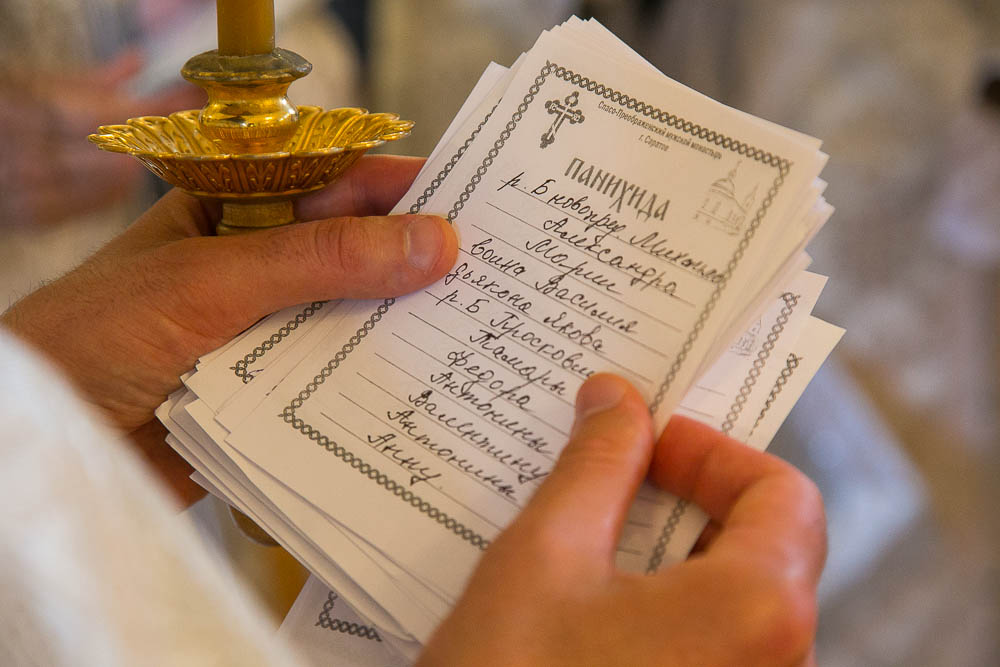 Спасо-Преображенский мужской монастырь
г. Саратов
ПАНИХИДА
р. Б новопрес Михаила
Александра
Марии
воина Василия
дьякона Якова
р. Б Просковии
Тамары
Федора
Антонины
Валентину
Антонины
Анну.